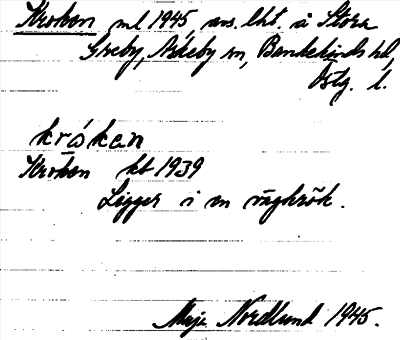 Kroken ml 1945, ans. lht. å Stora
Greby, Askeby sn, Bankekinds hd,
Östg. l.
krókan
Kroken kb 1939
Ligger i en vägkrök.
Maja Nordlund 1945.